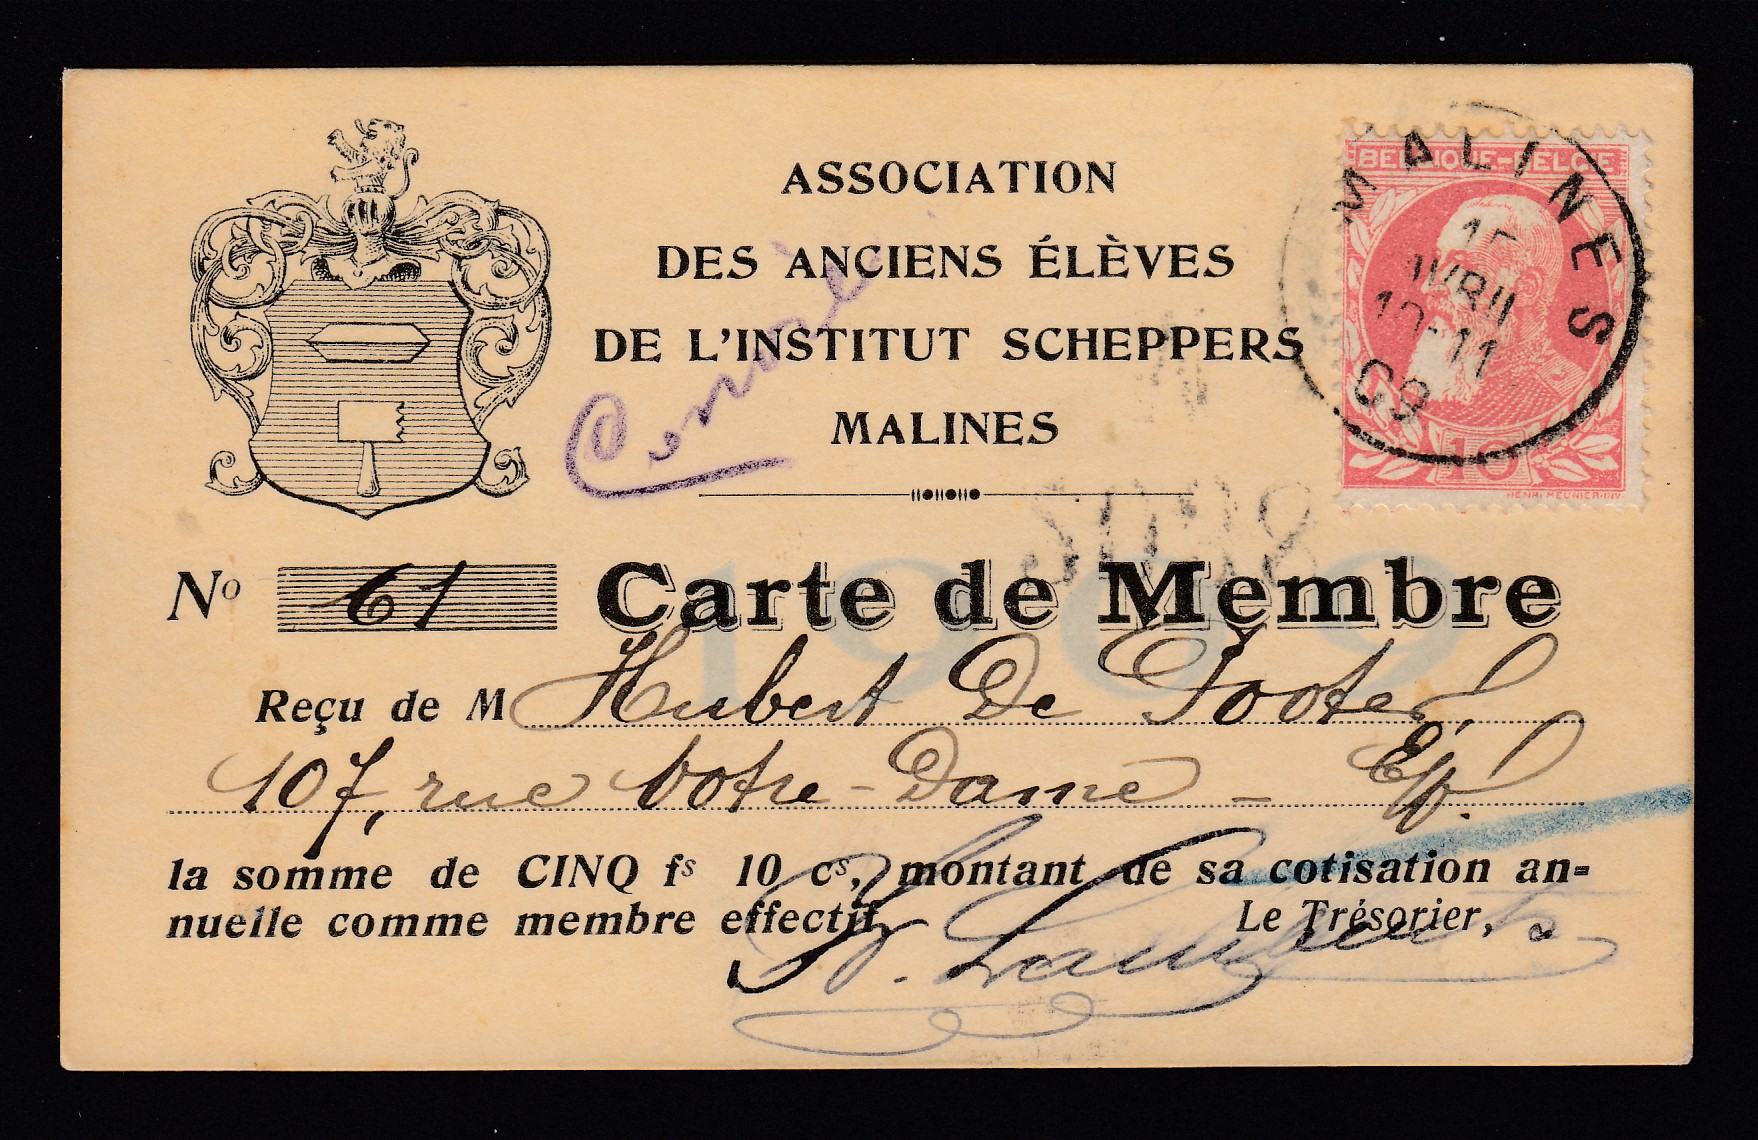 ASSOCIATION
DES ANCIENS ÉLÈVES
DE L'INSTITUT SCHEPPERS
MALINES
BELGIQUE-BELGIË
MALINES
15
AVRIL
10-11
09
10
HENRI MEUNIER-INV.
1909
No 61 Carte de Membre
Reçu de M Hubert De Pooter,
107, rue Notre-Dame - E/V.
la somme de CINQ fs 10 cs, montant de sa cotisation an=
nuelle comme membre effectif.
Le Trésorier,